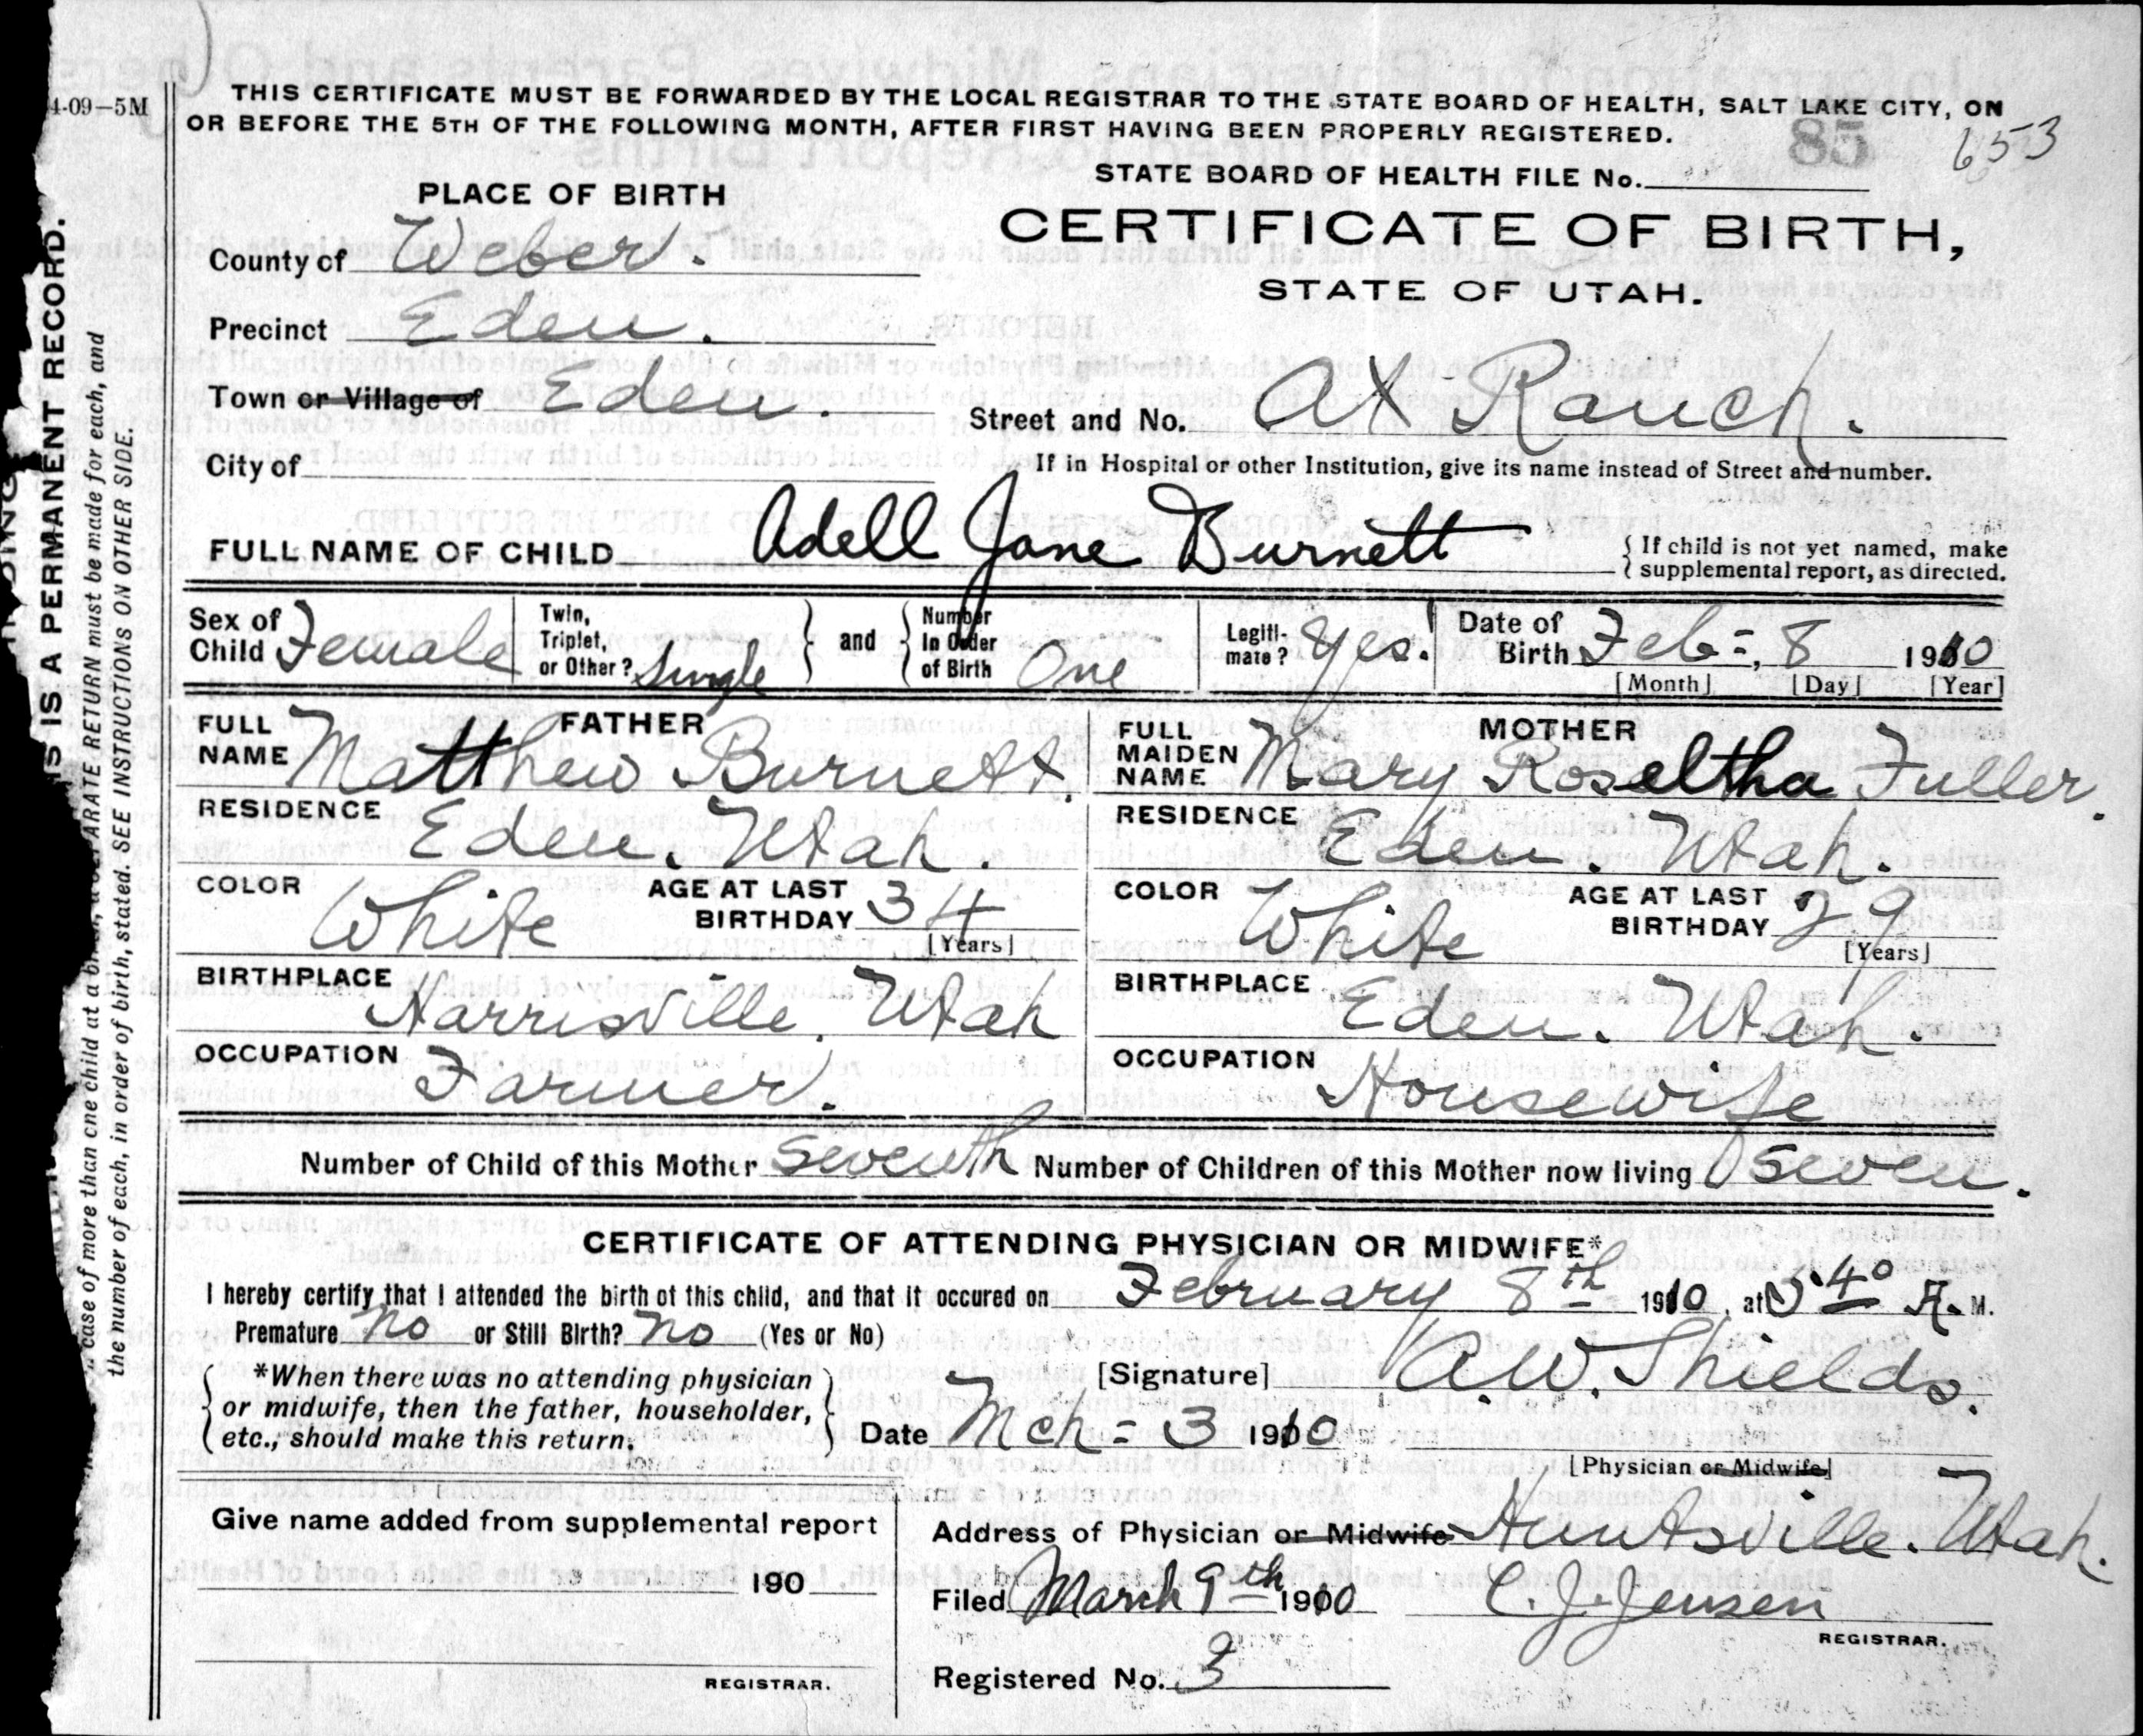 4-09—5M
THIS CERTIFICATE MUST BE FORWARDED BY THE LOCAL REGISTRAR TO THE STATE BOARD OF HEALTH, SALT LAKE CITY, ON
OR BEFORE THE 5TH OF THE FOLLOWING MONTH, AFTER FIRST HAVING BEEN PROPERLY REGISTERED.
85 653
STATE BOARD OF HEALTH FILE No.
PLACE OF BIRTH
CERTIFICATE OF BIRTH,
STATE OF UTAH.
County of Weber.
Precinct Eden.
Town or Village of Eden.
Street and No. AX Ranch.
City of
If in Hospital or other Institution, give its name instead of Street and number.
FULL NAME OF CHILD Adell Jane Burnett
{ If child is not yet named, make
supplemental report, as directed.
Sex of Child Female
Twin, Triplet, or Other? Single
and
Number In Order of Birth One
Legiti-mate? Yes.
Date of Birth Feb-, 8 1910
[Month] [Day] [Year]
FATHER
FULL NAME Matthew Burnett.
RESIDENCE Eden. Utah.
COLOR White
AGE AT LAST BIRTHDAY 34
[Years]
BIRTHPLACE Harrisville. Utah
OCCUPATION Farmer.
MOTHER
FULL MAIDEN NAME Mary Roseltha Fuller.
RESIDENCE Eden. Utah.
COLOR White
AGE AT LAST BIRTHDAY 29
[Years]
BIRTHPLACE Eden. Utah.
OCCUPATION Housewife
Number of Child of this Mother Seventh Number of Children of this Mother now living Seven.
CERTIFICATE OF ATTENDING PHYSICIAN OR MIDWIFE*
I hereby certify that I attended the birth of this child, and that it occured on February 8th 1910, at 5:40 A. M.
Premature No or Still Birth? No (Yes or No)
*When there was no attending physician
or midwife, then the father, householder,
etc., should make this return.
[Signature] A.W. Shields.
Date Mch - 3 1910
[Physician or Midwife]
Give name added from supplemental report
190
REGISTRAR.
Address of Physician or Midwife Huntsville. Utah.
Filed March 9th 1910 C. J. Jensen
REGISTRAR.
Registered No. 3
IS IS A PERMANENT RECORD.
case of more than one child at a birth, a SEPARATE RETURN must be made for each, and
the number of each, in order of birth, stated. SEE INSTRUCTIONS ON OTHER SIDE.